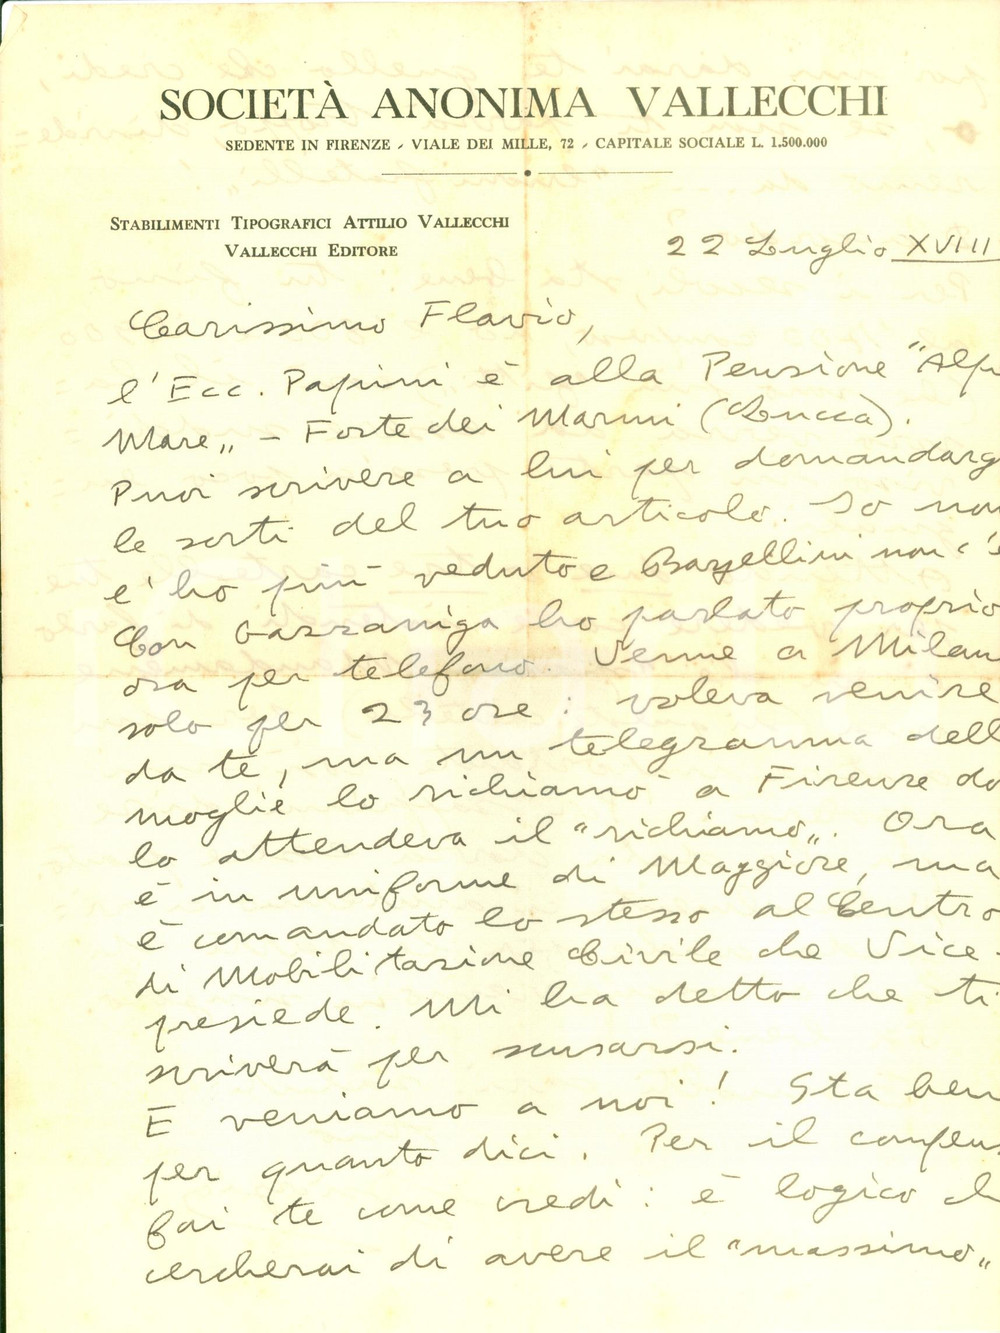 SOCIETÀ ANONIMA VALLECCHI
SEDENTE IN FIRENZE - VIALE DEI MILLE, 72 - CAPITALE SOCIALE L. 1.500.000
STABILIMENTI TIPOGRAFICI ATTILIO VALLECCHI
VALLECCHI EDITORE
22 Luglio XVIII
Carissimo Flavio,
l'Ecc. Papini è alla Pensione "Alpe
Mare„ - Forte dei Marmi (Lucca).
Puoi scrivere a lui per domandarg
le sorti del tuo articolo. Io non
l'ho più veduto e Bargellini non c'è
Con Gazzaniga ho parlato proprio
ora per telefono. Venne a Milan
solo per 23 ore: voleva venire
da te, ma un telegramma dell
moglie lo richiamò a Firenze do
lo attendeva il "richiamo„. Ora
è in uniforme di Maggiore, ma
è comandato lo stesso al Centro
di Mobilitazione Civile che Vice-
presiede. Mi ha detto che ti
scriverà per scusarsi.
E veniamo a noi! Sta ben
per quanto dici. Per il compens
fai te come credi: è logico ch
cercherai di avere il "massimo„